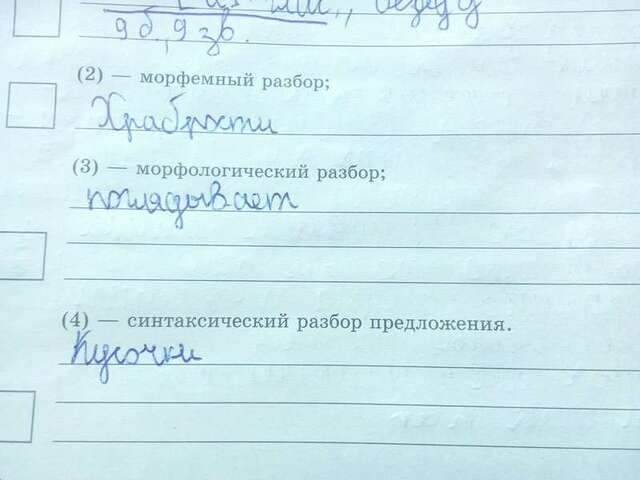 9 б., 9 зв.
(2) — морфемный разбор;
Храбрости
(3) — морфологический разбор;
поглядывает
(4) — синтаксический разбор предложения.
Кусочки